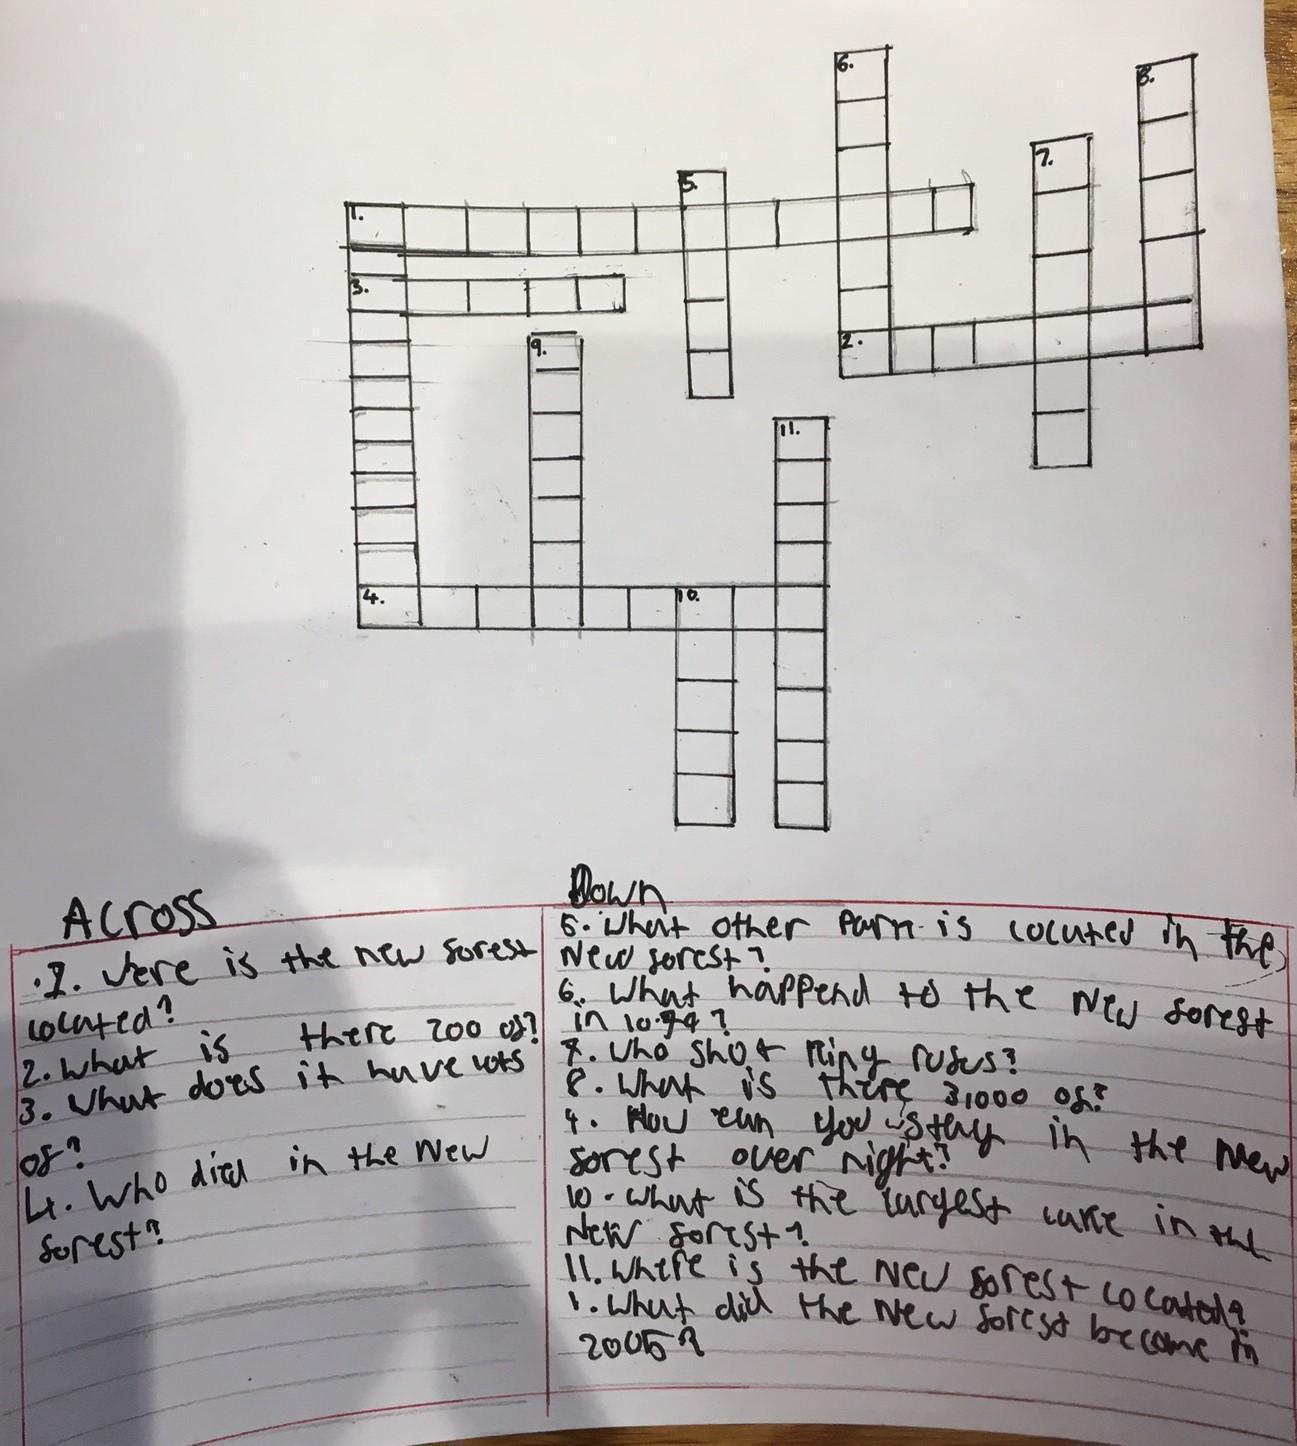 6.
8.
7.
5.
1.
3.
2.
9.
11.
4.
10.
Across
.1. were is the new forest
located?
2. what is there 200 of?
3. what does it have lots
of?
4. Who died in the New
forest?
Down
5. What other Parn is located in the
New forest?
6. What happend to the New forest
in 1079?
7. Who shot King rufus?
8. What is there 3,000 of?
9. How can you stay in the New
forest over night?
10. what is the largest lake in the
New forest?
11. Where is the New forest located?
1. What did the New forest become in
2005?